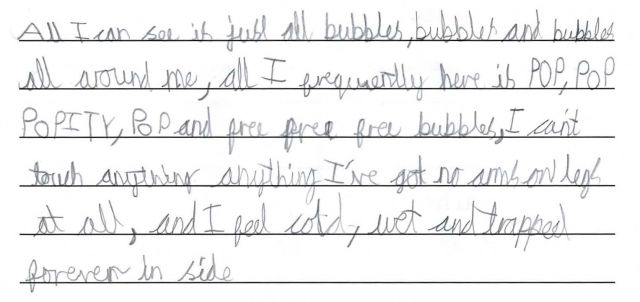 All I can see is just all bubbles, bubbles and bubbles
all around me, all I frequently here is POP, POP
POPITY, POP and free free free bubbles, I can't
touch anything anything I've got no arms or legs
at all, and I feel cold, wet and trapped
forever in side